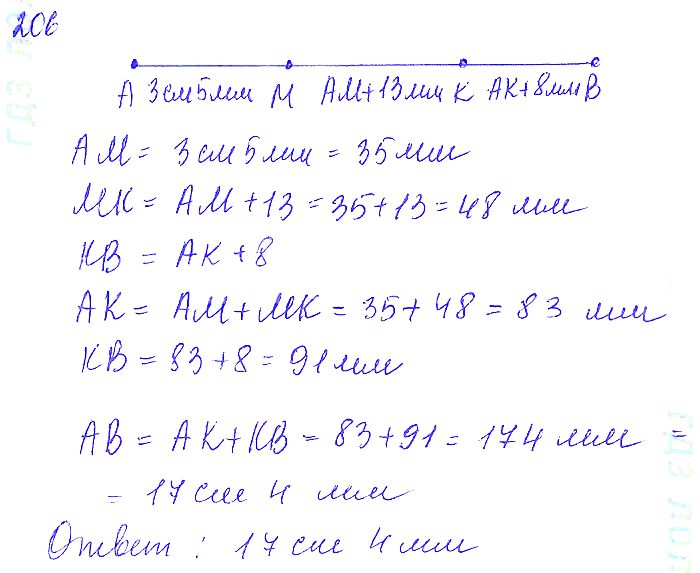 206
А 3см5мм М АМ+13мм К АК+8мм В
АМ = 3см5мм = 35мм
МК = АМ+13 = 35+13 = 48 мм
КВ = АК+8
АК = АМ+МК = 35+48 = 83 мм
КВ = 83+8 = 91мм
АВ = АК+КВ = 83+91 = 174 мм =
= 17см 4 мм
Ответ: 17 см 4мм